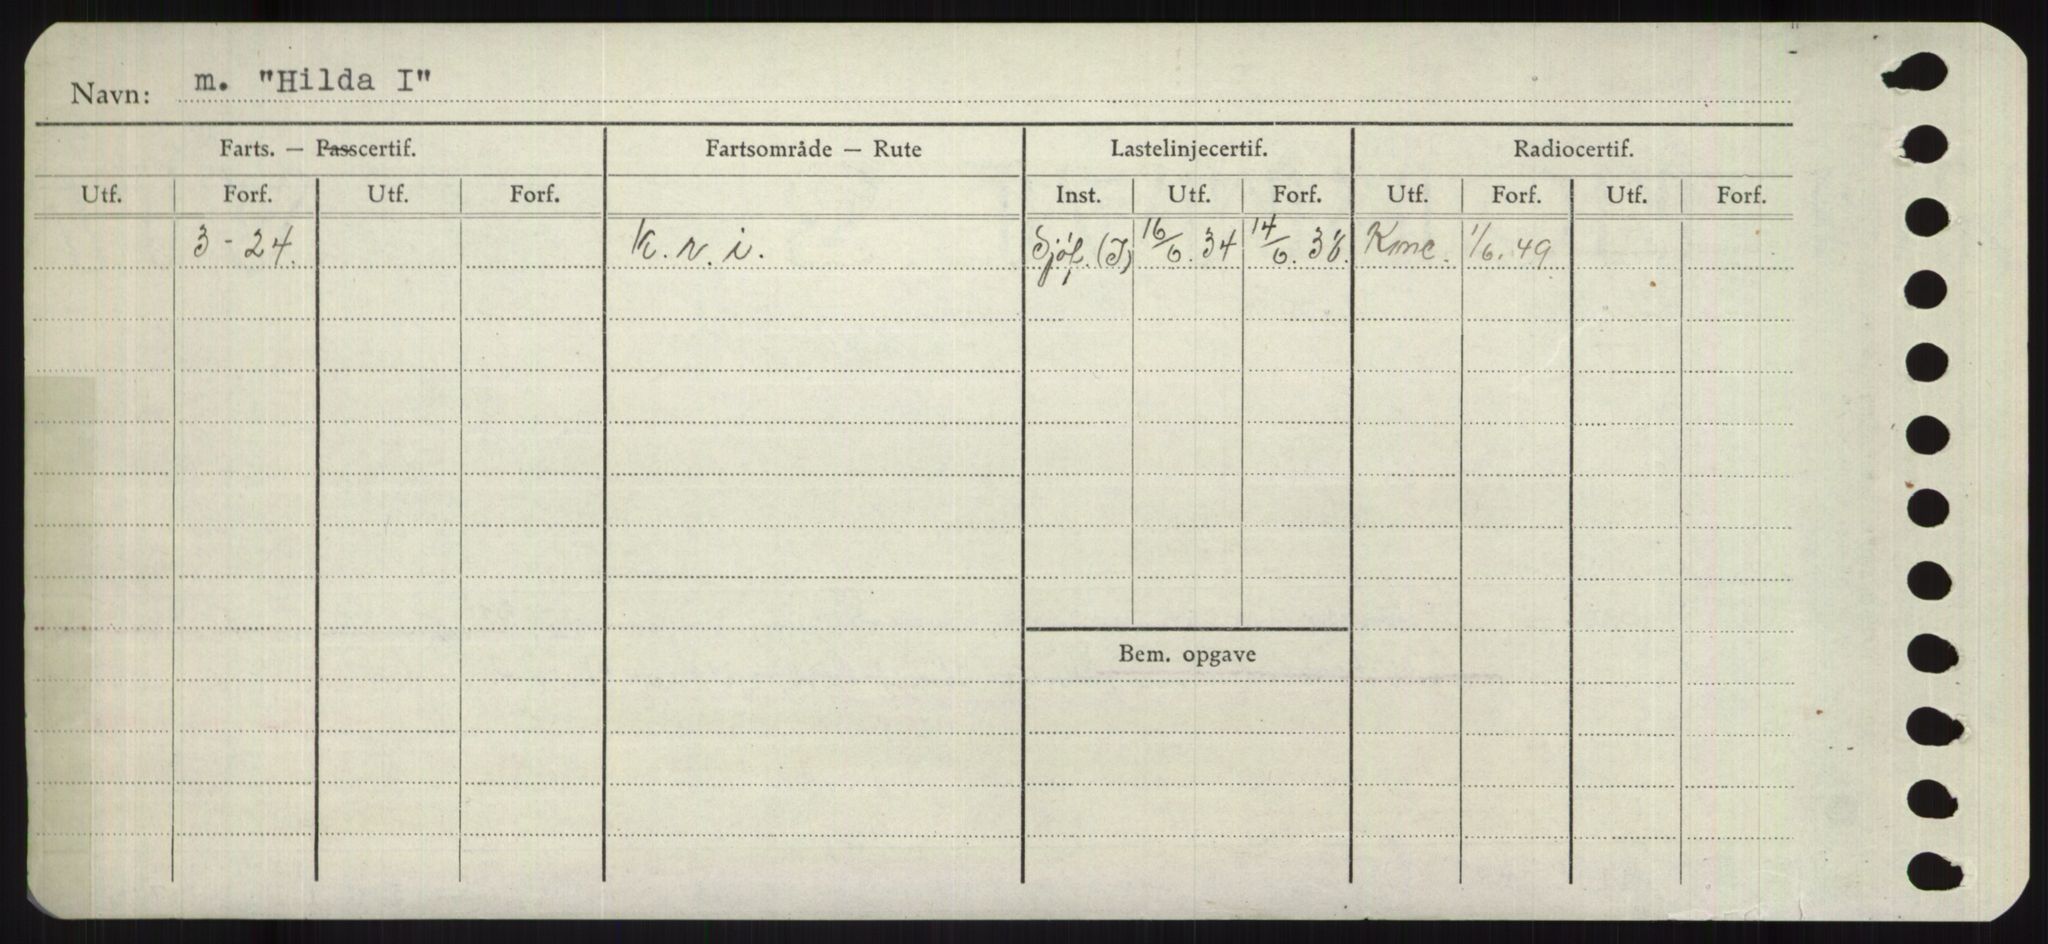 Navn: m. "Hilda I"
Farts. — Passcertif. Fartsområde — Rute Lastelinjecertif. Radiocertif.
Utf. Forf. Utf. Forf. Inst. Utf. Forf. Utf. Forf. Utf. Forf.
3-24. K. r. i. Sjöf. (I) 16/6. 34 14/6. 36. 1/6. 49.
Bem. opgave